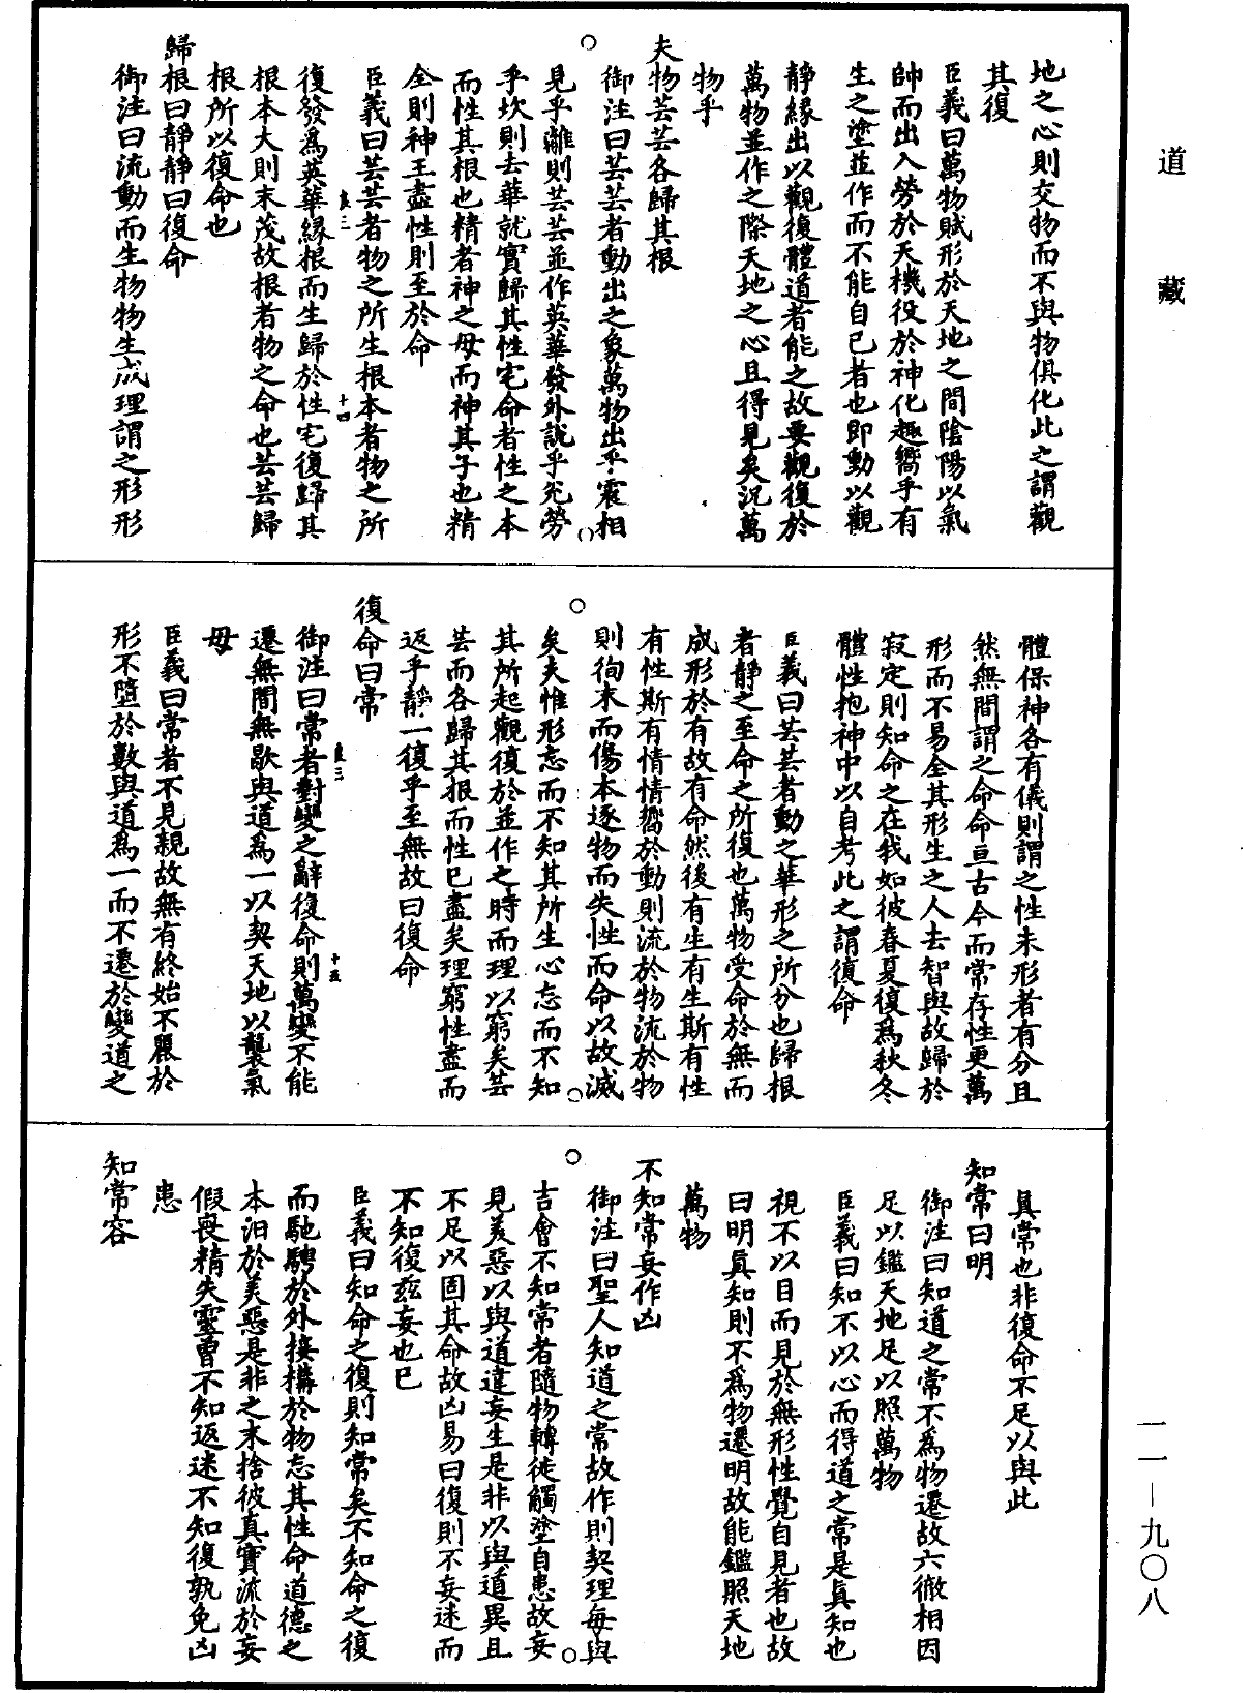 道藏
地之心則交物而不與物俱化此之謂觀
其復
臣義曰萬物賦形於天地之間陰陽以氣
帥而出入勞於天機役於神化趣嚮乎有
生之塗並作而不能自已者也即動以觀
靜緣出以觀復體道者能之故要觀復於
萬物並作之際天地之心且得見矣況萬
物乎
夫物芸芸各歸其根
御注曰芸芸者動出之象萬物出乎震相
見乎離則芸芸並作英華發外說乎兊勞
乎坎則去華就實歸其性宅命者性之本
而性其根也精者神之母而神其子也精
全則神王盡性則至於命
臣義曰芸芸者物之所生根本者物之所
復發爲英華緣根而生歸於性宅復歸其
根本大則末茂故根者物之命也芸芸歸
根所以復命也
歸根曰靜靜曰復命
御注曰流動而生物物生成理謂之形形
體保神各有儀則謂之性未形者有分且
然無間謂之命命亘古今而常存性更萬
形而不易全其形生之人去智與故歸於
寂定則知命之在我如彼春夏復爲秋冬
體性抱神中以自考此之謂復命
臣義曰芸芸者動之華形之所分也歸根
者靜之至命之所復也萬物受命於無而
成形於有故有命然後有生有生斯有性
有性斯有情情嚮於動則流於物流於物
則徇末而傷本逐物而失性而命以故滅
矣夫惟形忘而不知其所生心忘而不知
其所起觀復於並作之時而理以窮矣芸
芸而各歸其根而性已盡矣理窮性盡而
返乎靜一復乎至無故曰復命
復命曰常
御注曰常者對變之辭復命則萬變不能
遷無間無歇與道爲一以契天地以襲氣
母
臣義曰常者不見親故無有終始不麗於
形不墮於數與道爲一而不遷於變道之
眞常也非復命不足以與此
知常曰明
御注曰知道之常不爲物遷故六徹相因
足以鑑天地足以照萬物
臣義曰知不以心而得道之常是眞知也
視不以目而見於無形性覺自見者也故
曰明眞知則不爲物遷明故能鑑照天地
萬物
不知常妄作凶
御注曰聖人知道之常故作則契理每與
吉會不知常者隨物轉徙觸塗自患故妄
見美惡以與道違妄生是非以與道異且
不足以固其命故凶易曰復則不妄迷而
不知復茲妄也已
臣義曰知命之復則知常矣不知命之復
而馳騁於外接構於物忘其性命道德之
本汨於美惡是非之末捨彼真實流於妄
假喪精失靈曾不知返迷不知復孰免凶
患
知常容
一一—九〇八